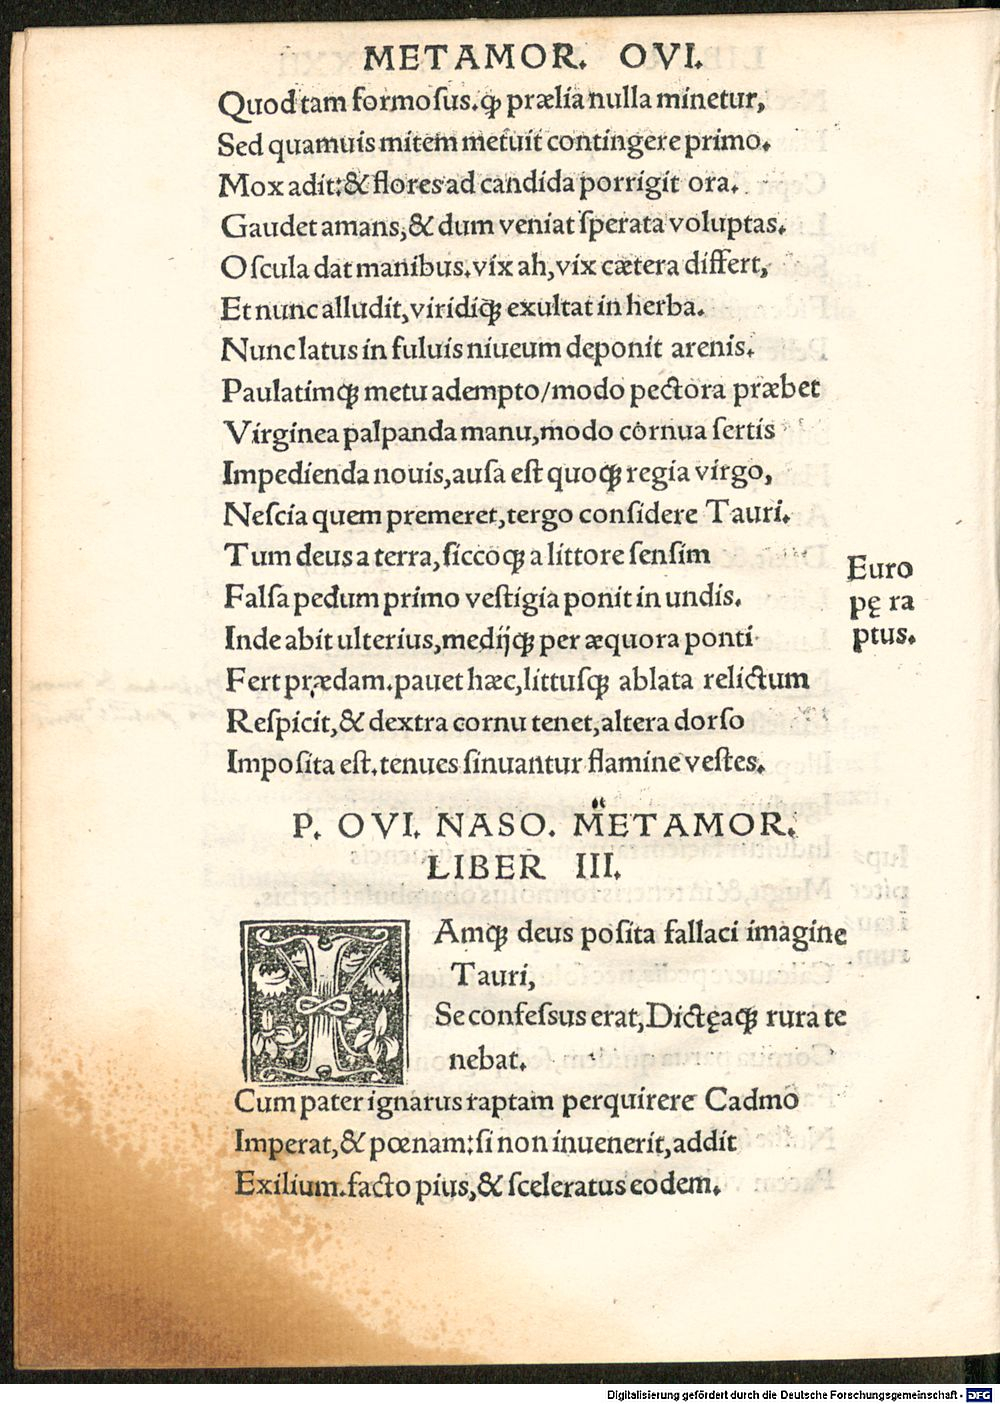 METAMOR. OVI.
Quod tam formoſus.ꝙ prælia nulla minetur,
Sed quamuis mitem metuit contingere primo.
Mox adit:& flores ad candida porrigit ora.
Gaudet amans,& dum veniat ſperata voluptas.
Oſcula dat manibus.vix ah,vix cætera differt,
Et nunc alludit,viridiqꝫ exultat in herba.
Nunc latus in fuluis niueum deponit arenis.
Paulatimqꝫ metu adempto/modo pectora præbet
Virginea palpanda manu,modo cornua ſertis
Impedienda nouis,auſa eſt quoqꝫ regia virgo,
Neſcia quem premeret,tergo conſidere Tauri.
Tum deus a terra,ſiccoqꝫ a littore ſenſim
Falſa pedum primo veſtigia ponit in undis.
Inde abit ulterius,medijqꝫ per æquora ponti
Fert prædam.pauet hæc,littuſqꝫ ablata relictum
Reſpicit,& dextra cornu tenet,altera dorſo
Impoſita eſt.tenues ſinuantur flamine veſtes.
Euro
pę ra
ptus.
P. OVI. NASO. METAMOR.
LIBER III.
IAmqꝫ deus poſita fallaci imagine
Tauri,
Se confeſſus erat,Dictęaqꝫ rura te
nebat.
Cum pater ignarus raptam perquirere Cadmo
Imperat,& pœnam:ſi non inuenerit,addit
Exilium.facto pius,& ſceleratus eodem.
Digitalisierung gefördert durch die Deutsche Forschungsgemeinschaft - DFG